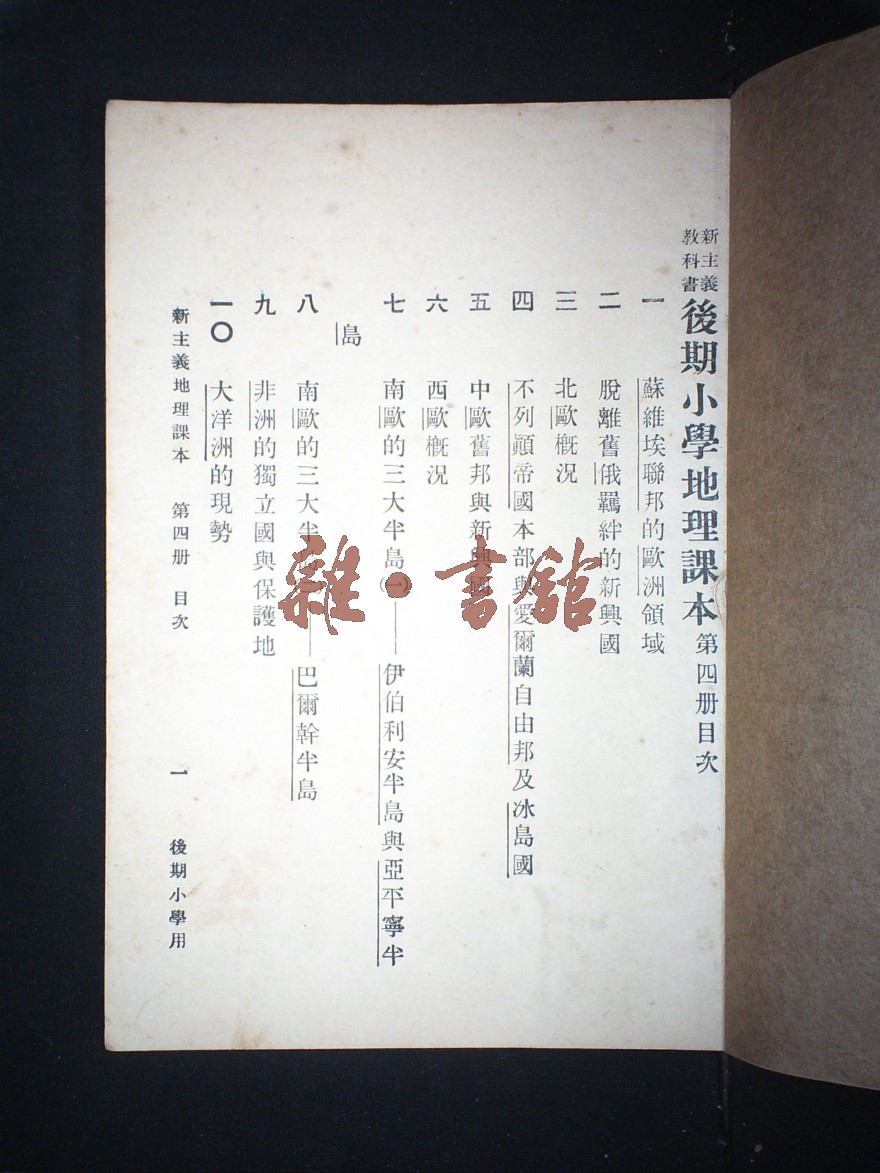 新主義
教科書
後期小學地理課本第四册目次
一 蘇維埃聯邦的歐洲領域
二 脫離舊俄羈絆的新興國
三 北歐槪況
四 不列顚帝國本部與愛爾蘭自由邦及冰島國
五 中歐舊邦與新興國
六 西歐槪況
七 南歐的三大半島(一)——伊伯利安半島與亞平寧半
島
八 南歐的三大半島——巴爾幹半島
九 非洲的獨立國與保護地
一〇 大洋洲的現勢
新主義地理課本 第四册 目次 一 後期小學用
雜·書館